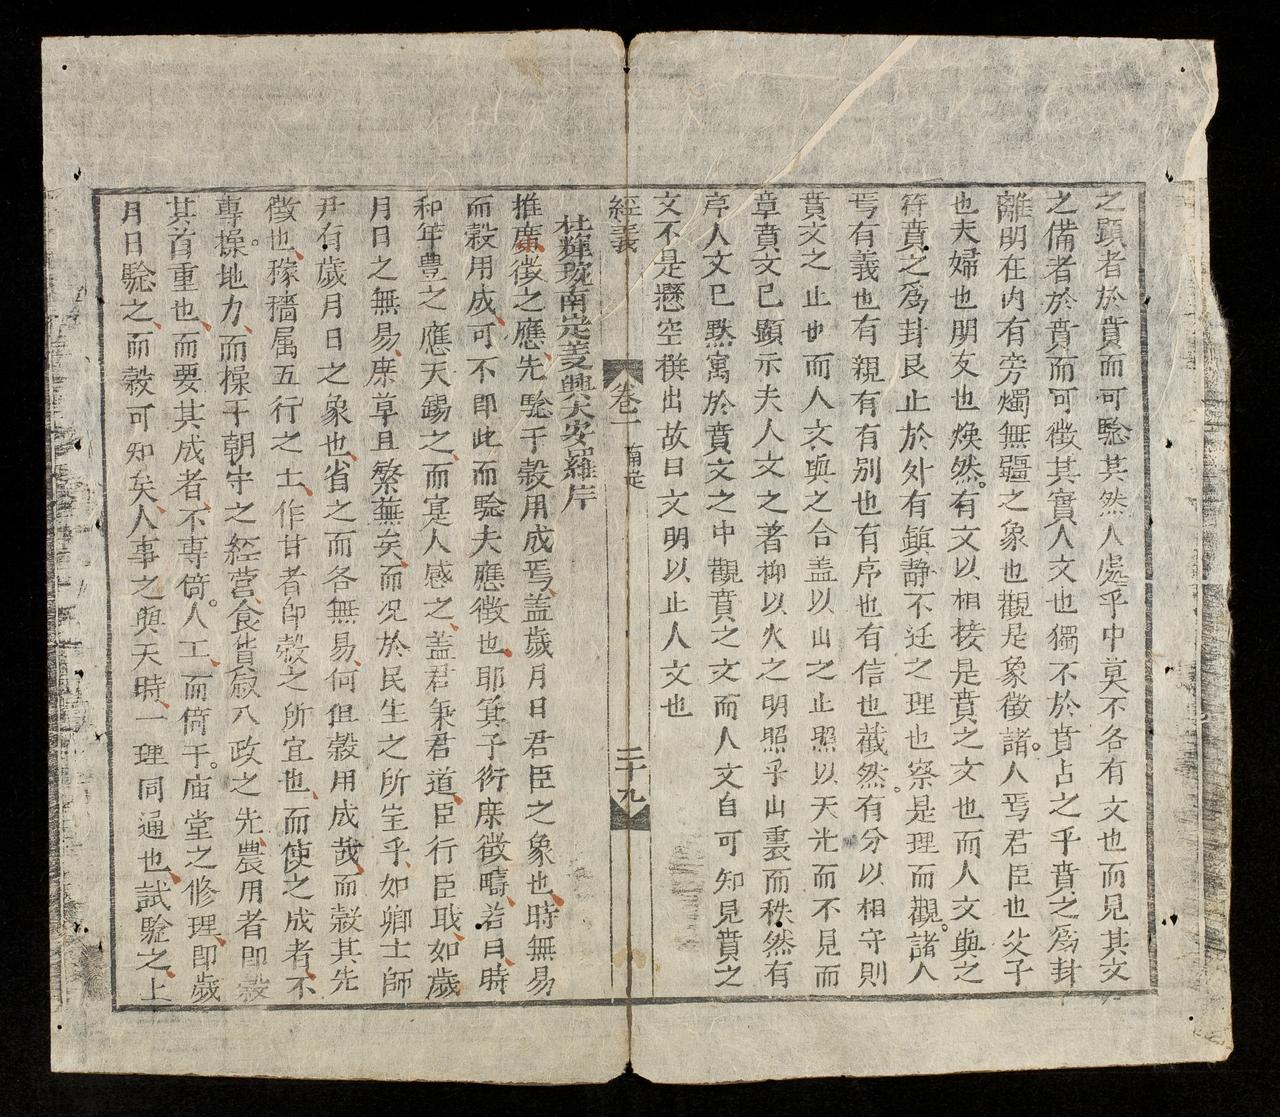 之顕者於賁而可騐其然人處乎中莫不各有文也而見其文
之備者於賁而可徵其實人文也獨不於賁占之乎賁之爲卦
離明在內有旁燭無疆之象也觀是象徵諸人焉君臣也父子
也夫婦也朋友也煥然有文以相接是賁之文也而人文與之
符賁之爲卦艮止於外有鎮静不迁之理也察是理而觀諸人
焉有義也有親有有别也有序也有信也截然有分以相守則
賁文之止也而人文與之合盖以山之止照以天光而不見而
章賁文已顯示夫人文之著柳以火之明照乎山裏而秩然有
序人文已黙寓於賁文之中觀賁之文而人文自可知見賁之
文不是懸空撰出故曰文明以止人文也
經義 卷一 南定 二十九
杜輝琬南定羙興大安羅岸
推廣徵之應先騐于穀用成焉盖歲月日君臣之象也時無易
而穀用成可不即此而騐夫應徵也耶箕子衍庶徵疇若曰時
和年豊之應天錫之而寔人感之盖君秉君道臣行臣職如歲
月日之無易庶草且繁蕪矣而况於民生之所宝乎如卿士師
尹有歲月日之象也省之而各無易何但穀用成哉而穀其先
徵也稼穡属五行之土作甘者即穀之所宜也而使之成者不
專操地力而操于朝守之経营食貨叙八政之先農用者即穀
其首重也而要其成者不專倚人工而倚于庙堂之修理即歲
月日騐之而穀可知矣人事之與天時一理同通也試騐之上